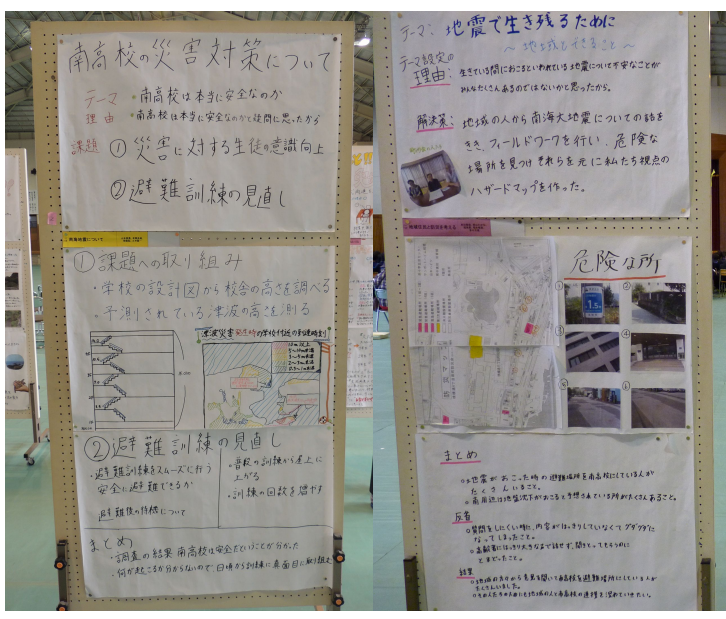 南高校の災害対策について
テーマ ・南高校は本当に安全なのか
理由 ・南高校は本当に安全なのかと疑問に思ったから
課題 ①災害に対する生徒の意識向上
②避難訓練の見直し
①課題への取り組み
・学校の設計図から校舎の高さを調べる
・予測されている津波の高さを測る
津波災害発生時の学校付近の到達時刻
②避難訓練の見直し
・避難訓練をスムーズに行う
安全に避難できるか
避難後の待機について
・普段の訓練から屋上に
上がる
・訓練の回数を増やす
まとめ
・調査の結果 南高校は安全だということが分かった
・何が起こるか分からないので、日頃から訓練に真面目に取り組む
テーマ: 地震で生き残るために
～ 地域とできること ～
テーマ設定の
理由: 生きている間におこるといわれている地震について不安なことが
みんなたくさんあるのではないかと思ったから。
解決策: 地域の人から南海大地震についての話を
きき、フィールドワークを行い、危険な
場所を見つけそれらを元に私たち視点の
ハザードマップを作った。
危険な所
①
②
③
④
⑤
⑥
1.5m
まとめ
○地震がおこった時の避難場所を南高校にしている人が
たくさんいること。
○南周辺は地盤沈下がおこると予想されている所がたくさんあること。
反省
○質問をしにくい時に、内容がはっきりしていなくてグダグダに
なってしまったこと。
○高齢者にはっきり大きな声で話せず、聞きとってもらうのに
とまどったこと。
結果
○地域の方から意見を聞いて南高校を避難場所にしている人が
たくさんいました。
○その人たちのためにも地域の人と南高校の連携を深めていきたい。